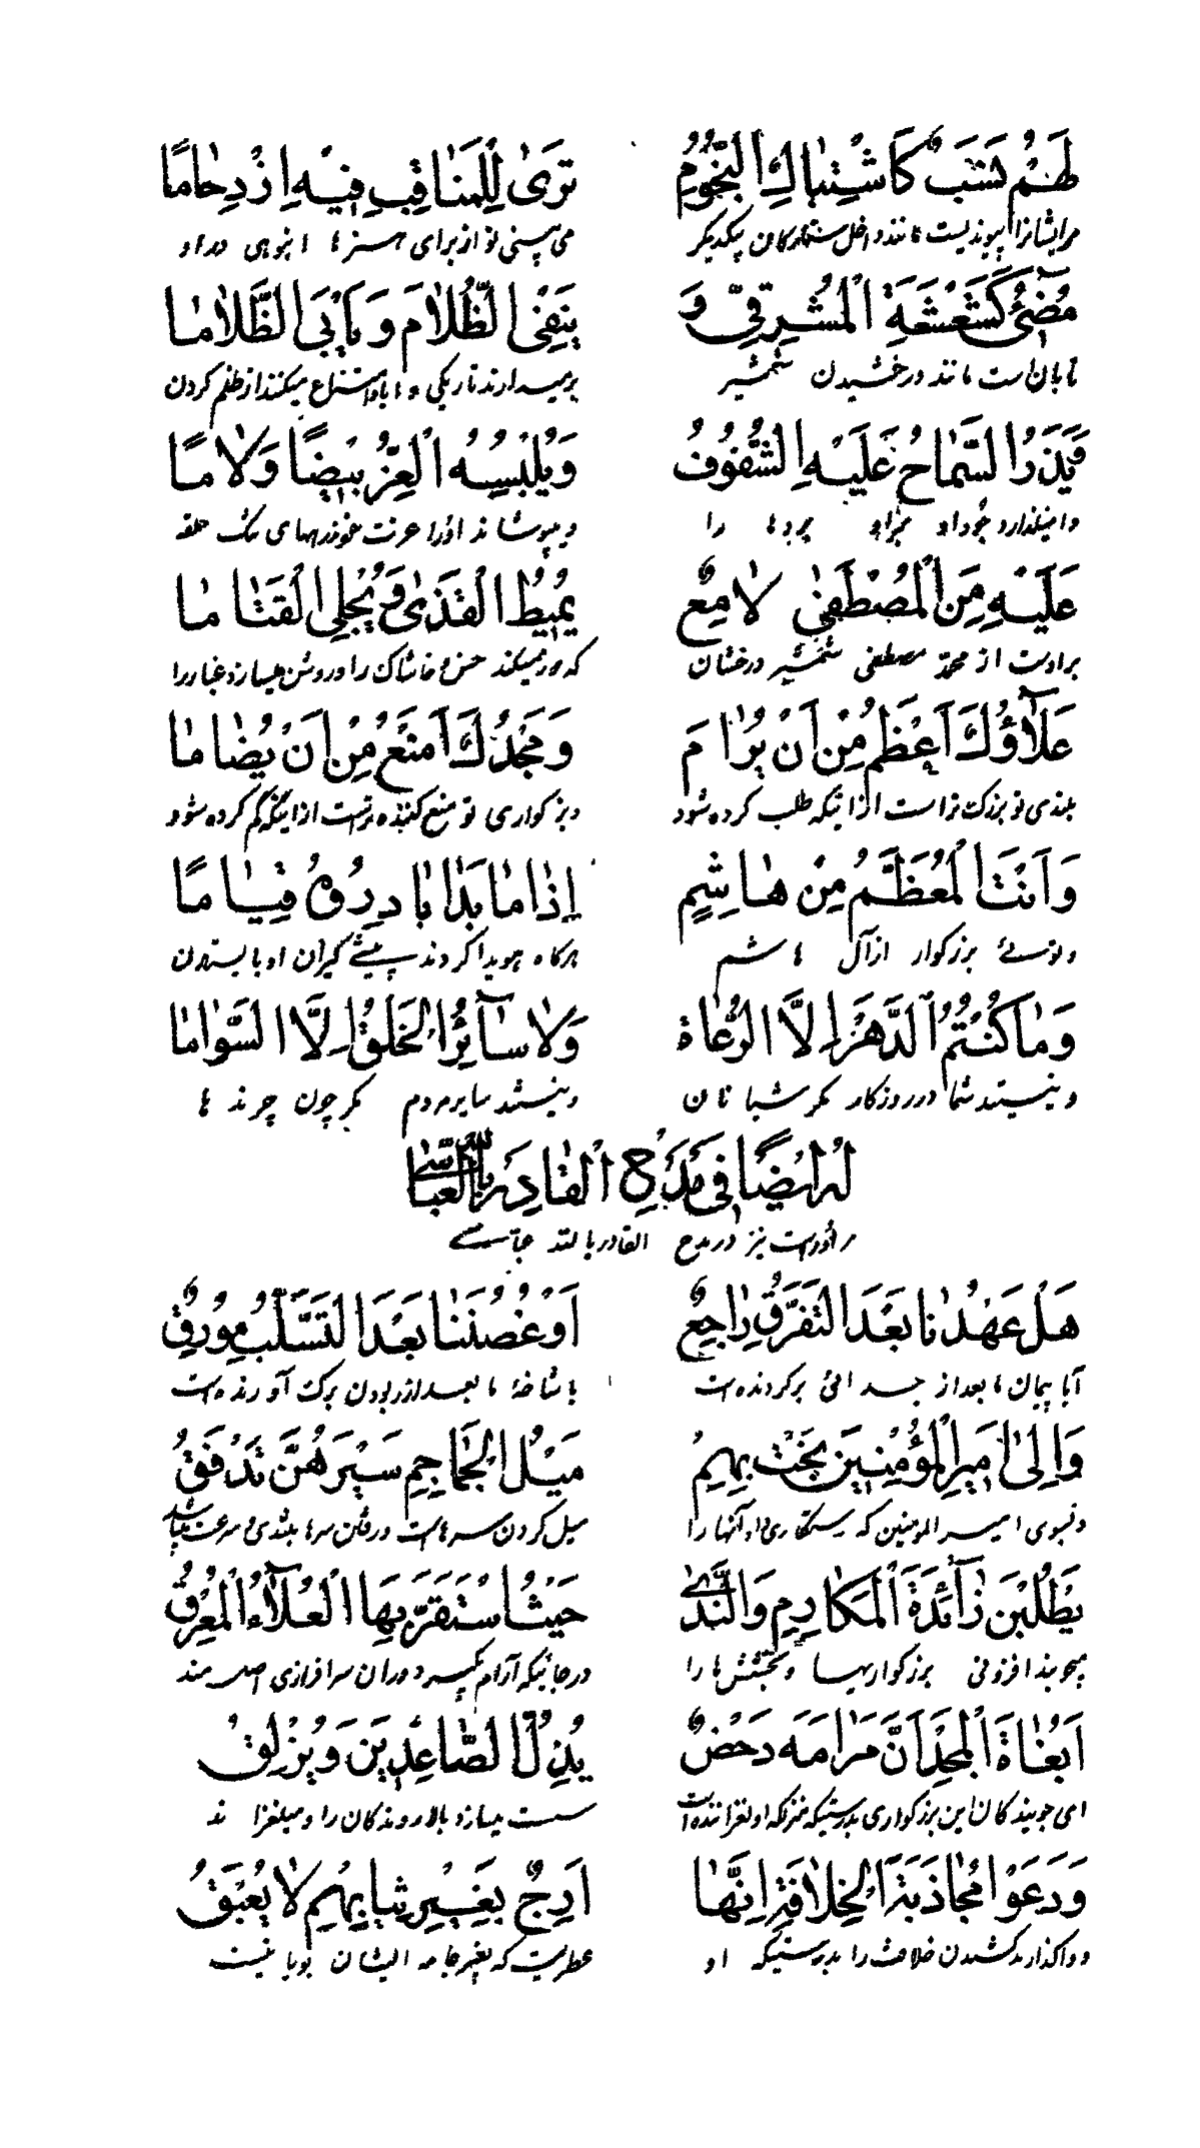 لَهُمْ نَسَبٌ كَاشْتِبَاكِ النُّجُومِ تَرَى لِلْمَنَاقِبِ فِيهِ ازْدِحَامًا
مرایشانرا پیوندیست مانند داخل ستارکان بیکدیکر می بینی تو از برای هنرها انبوهی در او
مُضِئٌ كَشَعْشَعَةِ الْمُشْرِقِيِّ وَ يَنْفِي الظُّلَامَ وَيَأْبَى الظَّلَامَا
تابان است مانند درخشیدن شمشیر برمیدارند تاریکی و ابا و امتناع میکنند از ظلم کردن
فَيَذَرُ السَّمَاحُ عَلَيْهِ الشُّفُوفُ وَيُلْبِسُهُ الْعِزُّ بِيضًا وَلَامًا
را و میپوشاند او را عزت خودرههای تنک حلقه
عَلَيْهِ مِنَ الْمُصْطَفَى لَامِعٌ يُمِيطُ الْقَذَى وَيُجْلِي الْقَتَامَا
بر اوست از محمد مصطفی شمشیر درخشان که دور میکند خس و خاشاک را و روشن میسازد غبار را
عَلَاؤُكَ أَعْظَمُ مِنْ أَنْ يُرَامَ وَمَجْدُكَ أَمْنَعُ مِنْ أَنْ يُضَامَا
بلندی تو بزرکتر است از اینکه طلب کرده شود و بزرکواری تو منع کننده تر است از اینکه کم کرده شود
وَأَنْتَ الْمُعَظَّمُ مِنْ هَاشِمٍ إِذَا مَا بَدَا بَادِرُوهُ قِيَامًا
و توئی بزرکوار از آل هاشم هرکاه هویدا کردند پیشی کیران او با یستدن
وَمَا كُنْتُمُ الدَّهْرَ إِلَّا الرُّعَاةَ وَلَا سَآئِرُ الْخَلْقِ إِلَّا السَّوَامَا
و نیستید شما در روزکار مکر شبانان و نیستند سایر مردم مکر چون چرندها
لَهُ أَيْضًا فِي مَدْحِ الْقَادِرِ بِاللهِ الْعَبَّاسِي
مر او راست نیز در مدح القادر بالله عباسی
هَلْ عَهْدُنَا بَعْدَ التَّفَرُّقِ رَاجِعٌ أَوْ غُصْنُنَا بَعْدَ التَّسَلُّبِ مُورِقُ
آیا پیمان ما بعد از جدائی برکردنده است یا شاخهٔ ما بعد از ربودن برک آورنده است
وَإِلَى أَمِيرِ الْمُؤْمِنِينَ نَجَتْ بِهِمْ مَيْلُ الْجَمَاجِمِ سَيْرُهُنَّ تَدَفُّقُ
و بسوی امیر المومنین که رستکاری داد آنها را میل کردن سرهاست در رفتن سرها بلندی و سرعت میباشد
يَطْلُبْنَ زَآئِدَةَ الْمَكَارِمِ وَالنَّدَى حَيْثُ اسْتَقَرَّ بِهَا الْعُلَآءُ الْمُعْرِقُ
میجویند افزونی بزرکواریها و بخششها را در جائیکه آرام کیرد در آن سرافرازی اصل مند
أَبُغَاةَ الْمَجْدِ إِنَّ مَرَامَهُ دَحْضٌ يُذِلُّ الصَّاعِدِينَ وَيُزْلِقُ
ای جویندکان این بزرکواری بدرستیکه منزلکه او لغزاننده است سست میسازد بالا روندکان را و میلغزاند
وَدَعُوا مُجَاذَبَةَ الْخِلَافَةِ إِنَّهَا أَرَجٌ بِغَيْرِ ثِيَابِهِمْ لَا يُعْبَقُ
و واکذارید کشیدن خلافت را بدرستیکه او عطریست که بغیر جامه ایشان بویا نیست